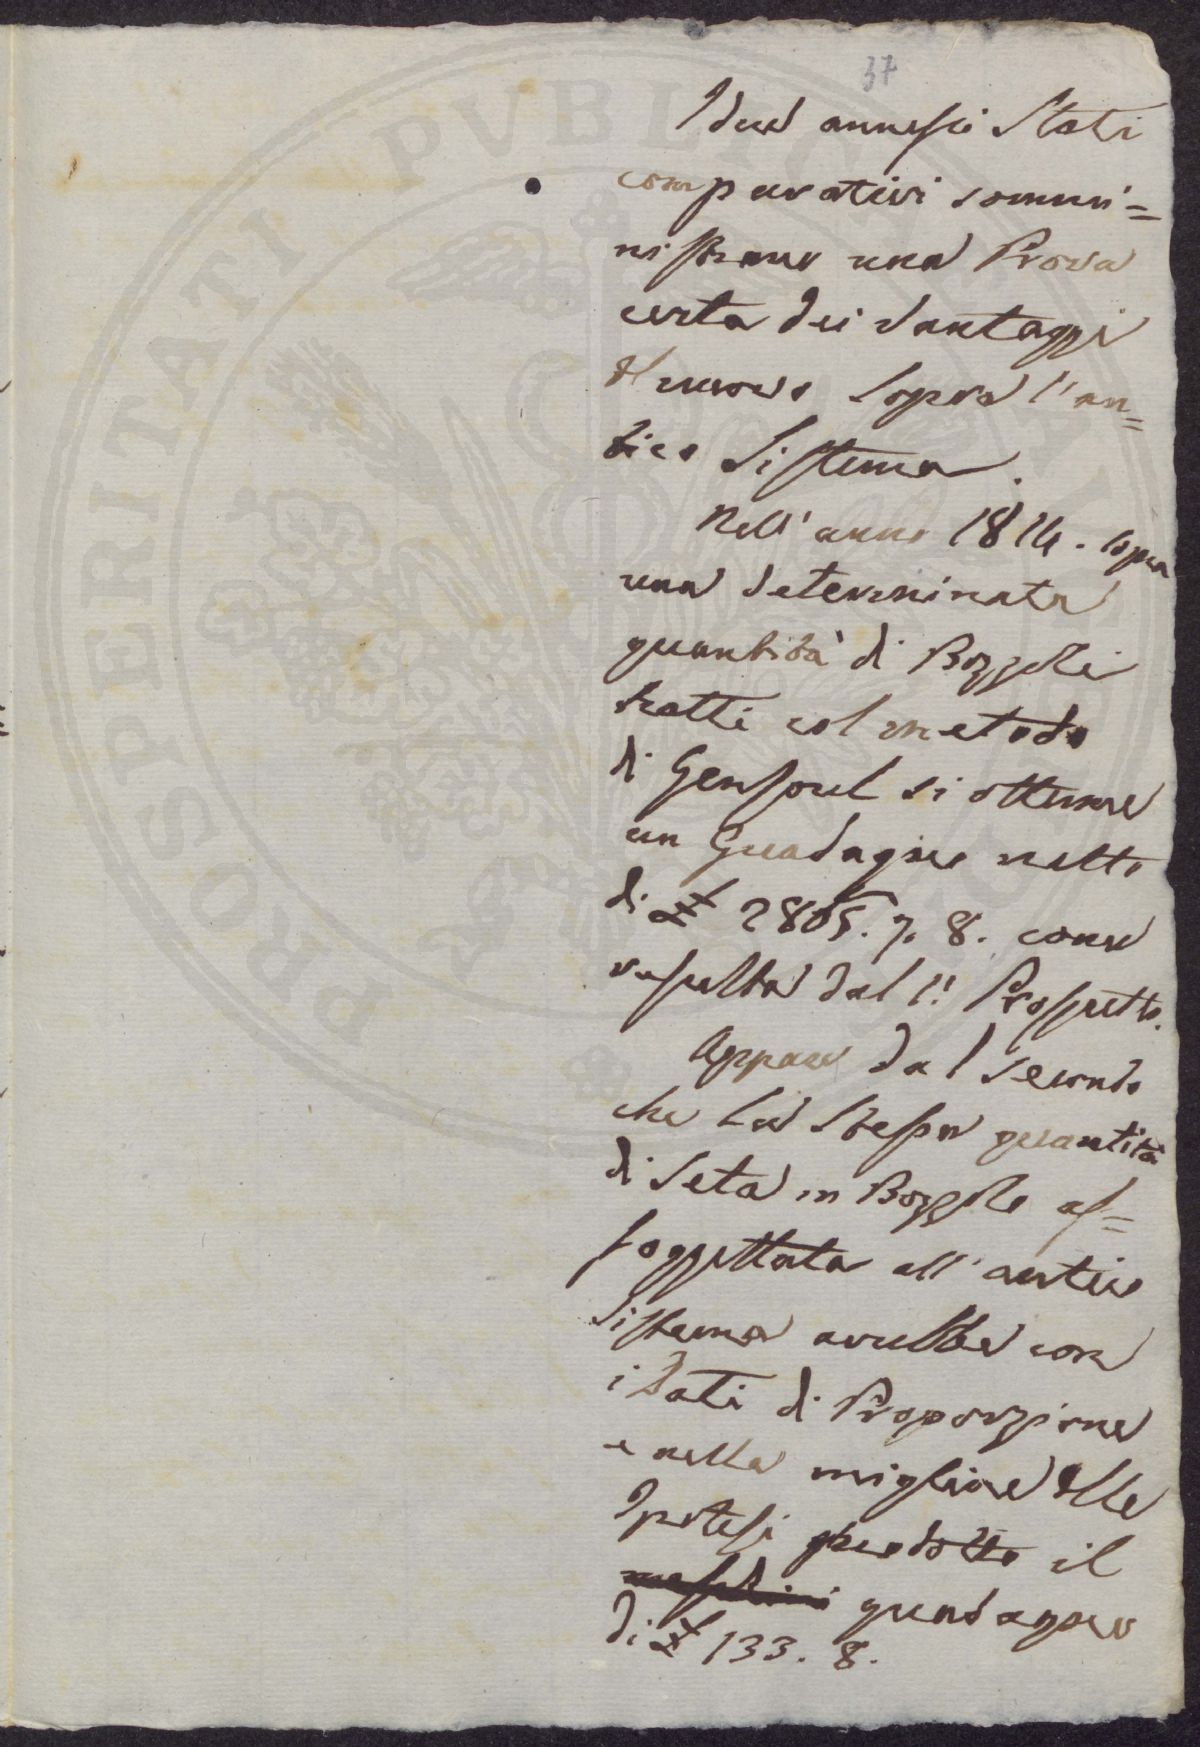 37
I due annessi Stati
comparativi sommi=
nistrano una Prova
certa dei Vantaggi
del nuovo sopra l'an=
tico Sistema.
Nell'anno 1814. sopra
una determinata
quantità di Bozzoli
tratti col metodo
di Gensoul si ottenne
un Guadagno netto
di £ 2805. 7. 8. come
resulta dal 1.º Prospetto.
Appare dal secondo
che la stessa quantità
di Seta in Bozzole as=
soggettata all'antico
Sistema avrebbe con
i Dati di Proporzione
e nella migliore delle
Ipotesi prodotto il
meschino guadagno
di £ 133. 8.
PROSPERITATI PVBLICAE